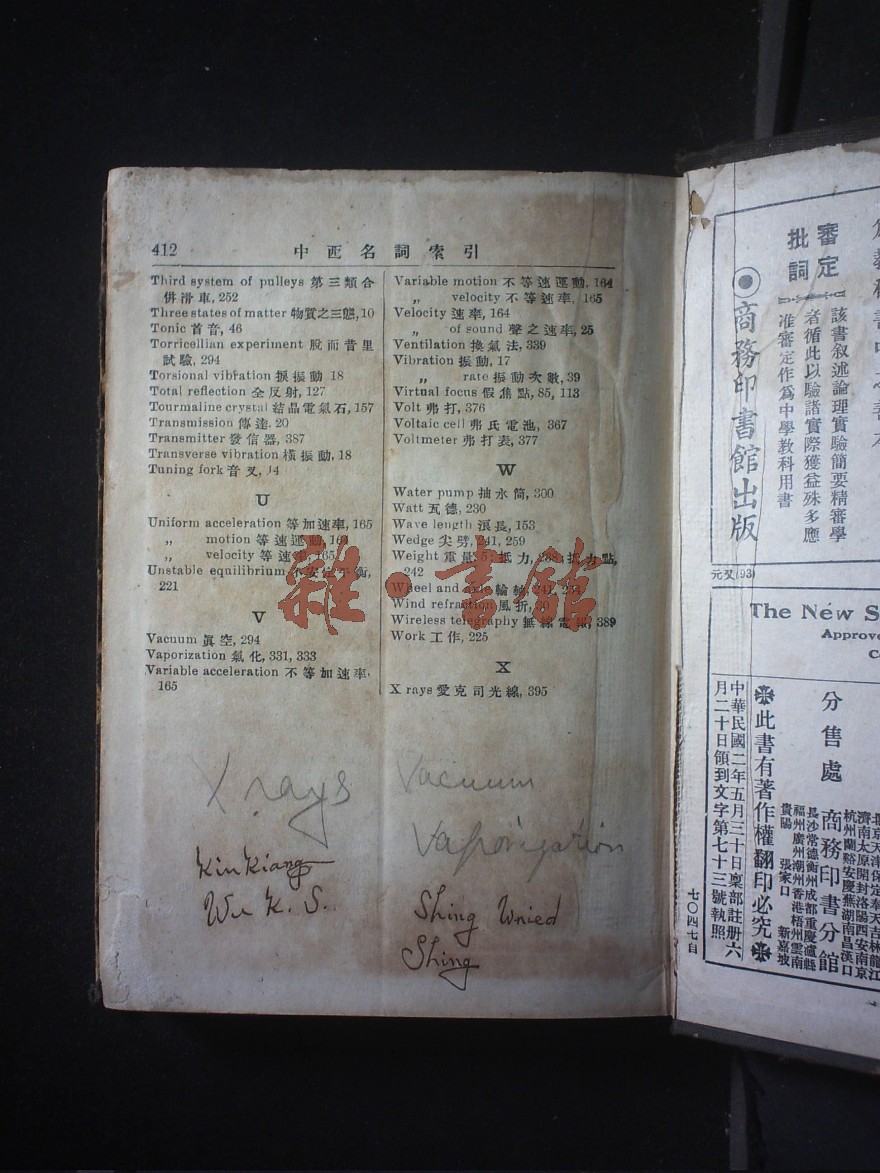 412
中西名詞索引
Third system of pulleys 第三類合
倂滑車, 252
Three states of matter 物質之三態, 10
Tonic 首音, 46
Torricellian experiment 脫而昔里
試驗, 294
Torsional vibration 捩振動 18
Total reflection 全反射, 127
Tourmaline crystal 結晶電氣石, 157
Transmission 傳達, 20
Transmitter 發信器, 387
Transverse vibration 橫振動, 18
Tuning fork 音叉, 14
U
Uniform acceleration 等加速率, 165
„ motion 等速運動, 164
„ velocity 等速率, 165
Unstable equilibrium 不安定平衡,
221
V
Vacuum 眞空, 294
Vaporization 氣化, 331, 333
Variable acceleration 不等加速率,
165
Variable motion 不等速運動, 164
„ velocity 不等速率, 165
Velocity 速率, 164
„ of sound 聲之速率, 25
Ventilation 換氣法, 339
Vibration 振動, 17
„ rate 振動次數, 39
Virtual focus 假焦點, 85, 113
Volt 弗打, 376
Voltaic cell 弗氏電池, 367
Voltmeter 弗打表, 377
W
Water pump 抽水筒, 300
Watt 瓦德, 230
Wave length 浪長, 153
Wedge 尖劈, 241, 259
Weight 重量, 5; 抵力, 288; 抵力點,
242
Wheel and axle 輪軸, 241, 254
Wind refraction 風折, 30
Wireless telegraphy 無線電報, 389
Work 工作, 225
X
X rays 愛克司光線, 395
雜·書館
X rays
Vacuum
Vaporization
Kiukiang
Wu K. S.
Shing Wnied
Shing
審定
批詞
該書叙述論理實驗簡要精審學
者循此以驗諸實際獲益殊多應
准審定作爲中學敎科用書
商務印書館出版
元又(93)
The New S
Approve
Co
分售處
商務印書分館
北京天津保定奉天吉林龍江
濟南太原開封洛陽西安南京
杭州蘭谿安慶蕪湖南昌漢口
長沙常德衡州成都重慶瀘縣
福州廣州潮州香港梧州雲南
貴陽 張家口 新嘉坡
此書有著作權翻印必究
中華民國二年五月三十日稟部註册六
月二十日領到文字第七十三號執照
七〇四七自